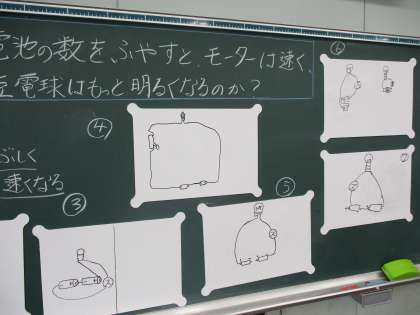 電池の数を、ふやすと、モーターは速く、
豆電球はもっと明るくなるのか？
ぶしく
速くなる
③
④
⑤
⑥